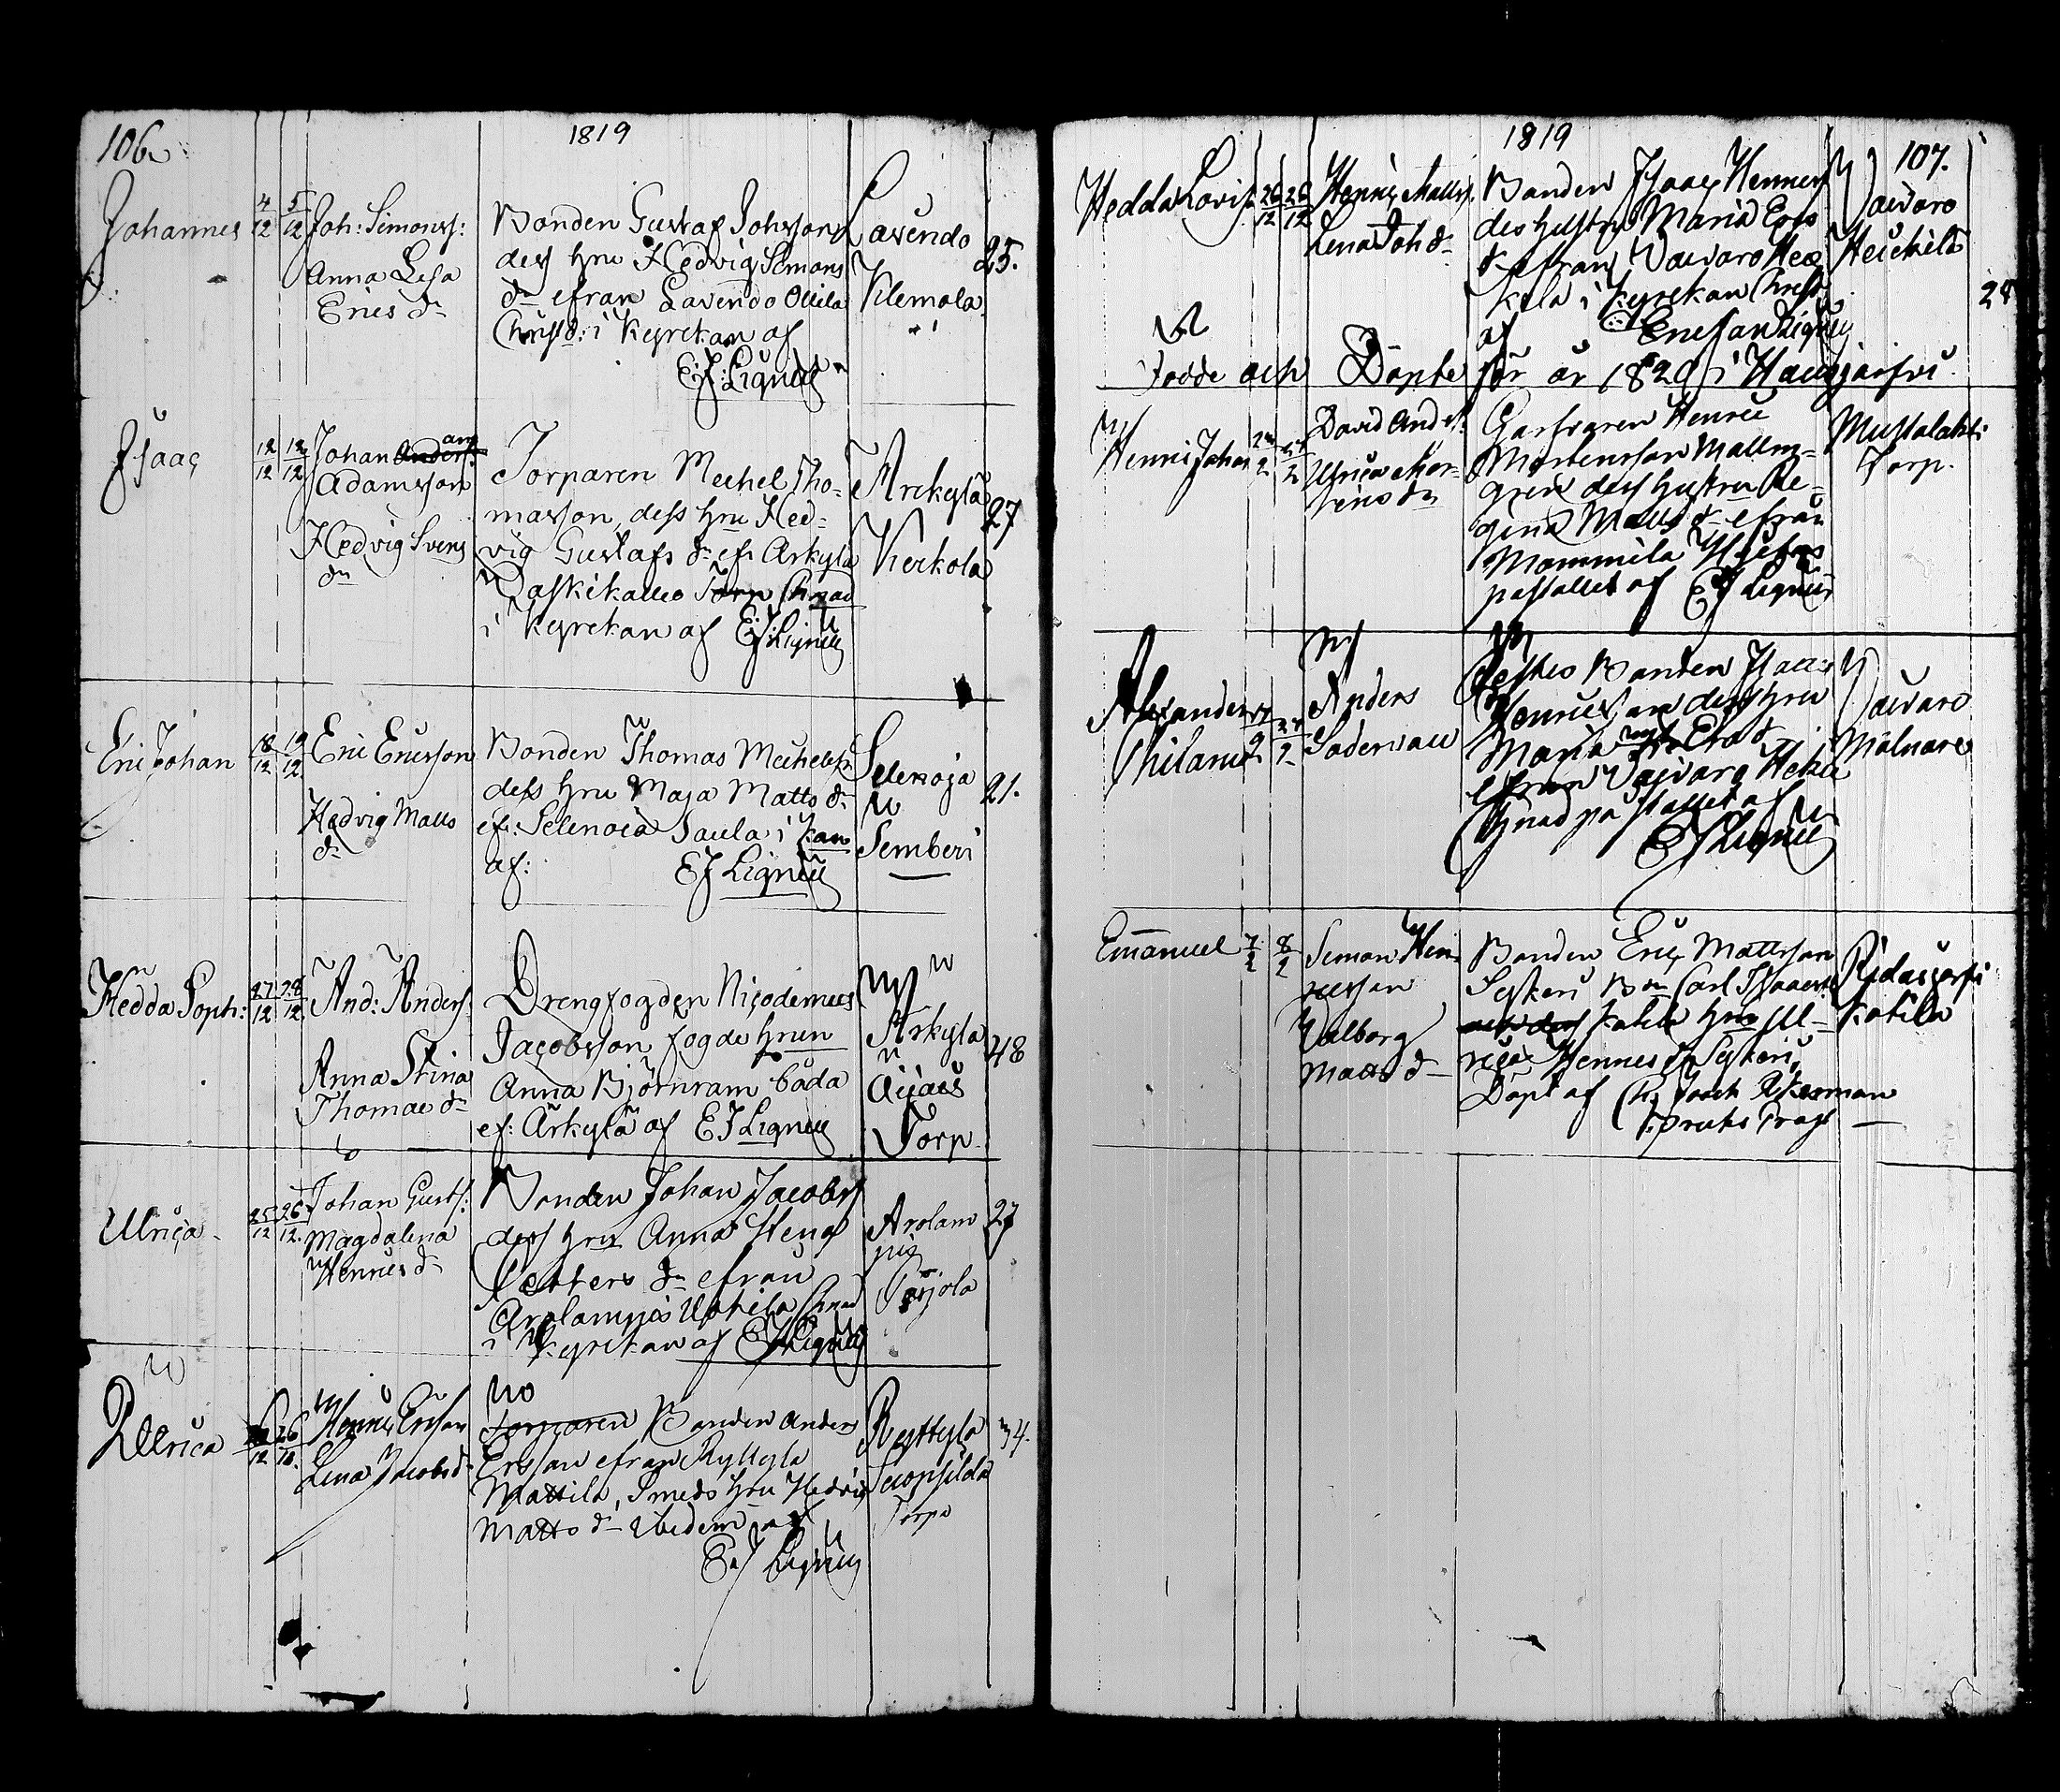 106
1819
Johannes
4/12 5/12
Joh: Simonss:
Anna Lisa
Erics dr
Bonden Gustaf Johsson
dess hru Hedvig Simons
dr ifrån Lavendo Ollila
Christd: i Kyrckan af
E:J: Lignell
Lavendo
Klemola
25.
Isaac
12/12 12/12
Johan
Adamsson
Hedvig Svens
dr
Torparen Michel Tho-
masson, dess hru Hed-
vig Gustafs dr ifr Arkylä
Paskikallio Torp Chnad
i Kyrckan af EJ: Lignell
Arckylä
Kerkola
27
Eric Johan
18/12 19/12
Eric Ericsson
Hedvig Matts
dr
Bonden Thomas Michelss:
dess hru Maja Matts dr
if: Selenoja Paula i kan
af: EJ Lignell
Selenoja
Semberi
21.
Hedda Soph:
27/12 28/12
And: Anderss:
Anna Stina
Thomas dr
Drengfogden Nicodemus
Jacobsson fogde hrun
Anna Björnram båda
if: Arkylä af EJ Lignell
Arkyla
Äijäes
Torp
48
Ulrica
25/12 26/12
Johan Gusts:
Magdalena
Henrics dr
Bonden Johan Jacobss
dess hru Anna Hena
Petters dr ifrån
Arolampis Uotila Chnad
i Kyrckan af EJ Lignell
Arolam
pis
Pajola
27
Ulrica
26
Henric Ersson
Lena Jacobsd
Torparen Bonden Anders
Ersson ifrån Ryttylä
Mattila, Smeds hru Hedvig
Matts dr ibidem af
EJ Lignell
Ryttylä
Torpa
34.
1819
107.
Hedda Lovis
26/12 26/12
Henric Matts
Lena Joh dr
Bonden Isaac Henrics
des hustru Maria Ers
dr ifrån Vaivaro Hei
kila i kyrckan Christ
af Ericssan Lignell
Vaivaro
Heickilä
28
Födde och Döpte för år 1820 i Hausjärfvi
Henric Johan
David Anders:
Ulrica Mor-
tens dr
Garfvaren Henric
Mortensson Malm-
gren dess hustru Re-
gina Matts dr ifrån
Mommila
på stället af EJ Lignell
Mustalahti
Torp.
Alexander
Anders
Bonden Isaac
Henricsson dess hru
Maria Ers d
ifrån Vaivaro Heicki
Chnad på stället af
EJ Lignell
Vaivaro
Mälnare
Emanuel
7/2 8/2
Simon Hen-
ricsson
Valborg
Matts dr
Bonden Eric Mattsson
Sykeri Bdn Carl Isaacss
Katila hru Ul-
rica Henrics dr Sykeri,
Döpt af Joach Åkerman
Ridasjerfvi
Katila